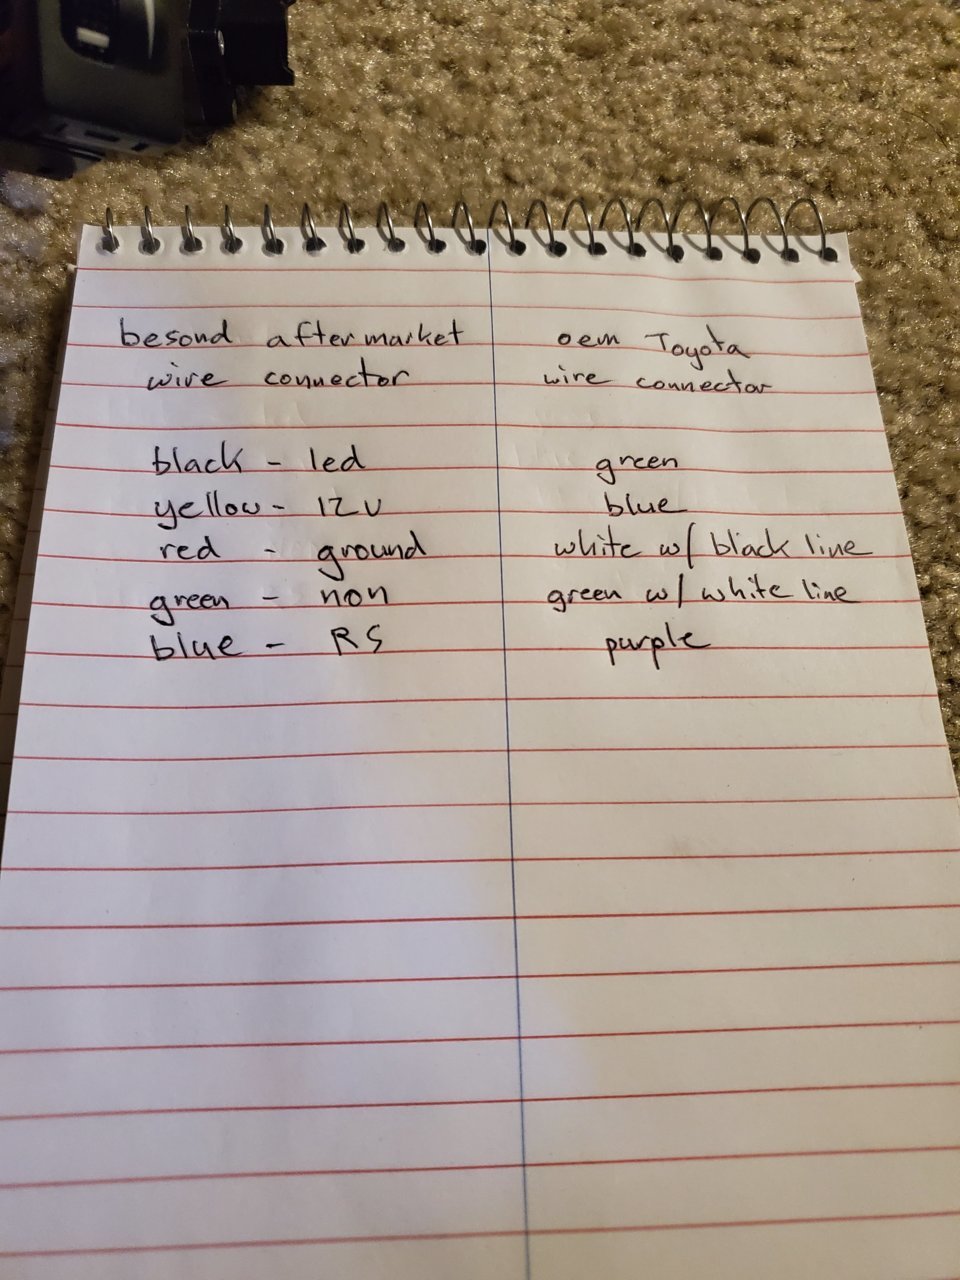 besond aftermarket
wire connector
black - led
yellow - 12v
red - ground
green - non
blue - RS
oem Toyota
wire connector
green
blue
white w/ black line
green w/ white line
purple